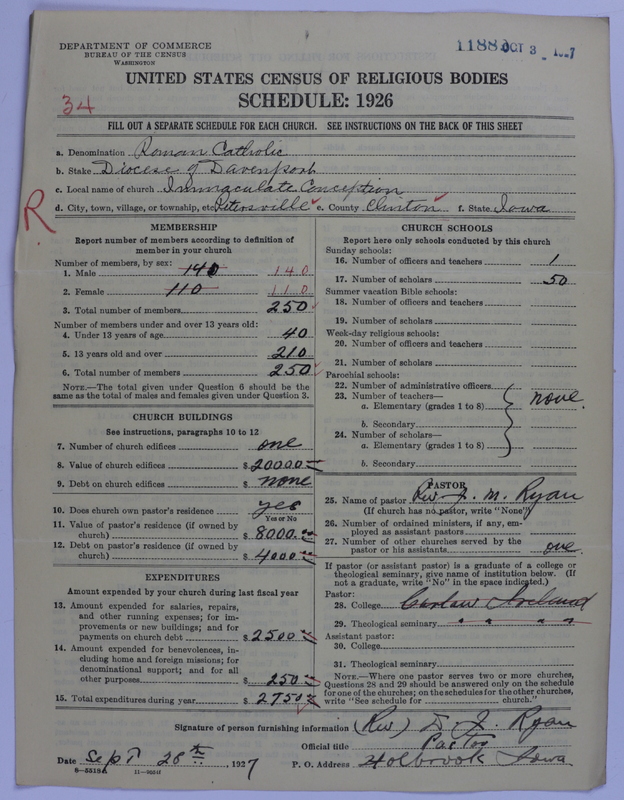 DEPARTMENT OF COMMERCE
BUREAU OF THE CENSUS
WASHINGTON
1188 OCT 3 - 1927
UNITED STATES CENSUS OF RELIGIOUS BODIES
34
SCHEDULE: 1926
FILL OUT A SEPARATE SCHEDULE FOR EACH CHURCH. SEE INSTRUCTIONS ON THE BACK OF THIS SHEET
a. Denomination Roman Catholic
b. Stake Diocese of Davenport
c. Local name of church Immaculate Conception
d. City, town, village, or township, etc Petersville e. County Clinton f. State Iowa
R
MEMBERSHIP
Report number of members according to definition of
member in your church
Number of members, by sex:
1. Male 140 140
2. Female 110 110
3. Total number of members 250
Number of members under and over 13 years old:
4. Under 13 years of age 40
5. 13 years old and over 210
6. Total number of members 250
NOTE.—The total given under Question 6 should be the
same as the total of males and females given under Question 3.
CHURCH BUILDINGS
See instructions, paragraphs 10 to 12
7. Number of church edifices one
8. Value of church edifices $ 20000
9. Debt on church edifices $ none
10. Does church own pastor's residence yes
Yes or No
11. Value of pastor's residence (if owned by
church) $ 8000.00
12. Debt on pastor's residence (if owned by
church) $ 4000.00
EXPENDITURES
Amount expended by your church during last fiscal year
13. Amount expended for salaries, repairs,
and other running expenses; for im-
provements or new buildings; and for
payments on church debt $ 2500
14. Amount expended for benevolences, in-
cluding home and foreign missions; for
denominational support; and for all
other purposes $ 250
15. Total expenditures during year $ 2750
CHURCH SCHOOLS
Report here only schools conducted by this church
Sunday schools:
16. Number of officers and teachers 1
17. Number of scholars 50
Summer vacation Bible schools:
18. Number of officers and teachers
19. Number of scholars
Week-day religious schools:
20. Number of officers and teachers
21. Number of scholars
Parochial schools:
22. Number of administrative officers
23. Number of teachers—
a. Elementary (grades 1 to 8) none
b. Secondary
24. Number of scholars—
a. Elementary (grades 1 to 8)
b. Secondary
PASTOR
25. Name of pastor Rev J. M. Ryan
(If church has no pastor, write "None")
26. Number of ordained ministers, if any, em-
ployed as assistant pastors
27. Number of other churches served by the
pastor or his assistants one
If pastor (or assistant pastor) is a graduate of a college or
theological seminary, give name of institution below. (If
not a graduate, write "No" in the space indicated.)
Pastor:
28. College Carlow Ireland
29. Theological seminary " " " "
Assistant pastor:
30. College
31. Theological seminary
NOTE.—Where one pastor serves two or more churches,
Questions 28 and 29 should be answered only on the schedule
for one of the churches; on the schedules for the other churches,
write "See schedule for church."
Signature of person furnishing information (Rev) D. J. Ryan
Official title Pastor
Date Sept 28th, 1927 P. O. Address Holbrook Iowa
8-5518A 11-9024f